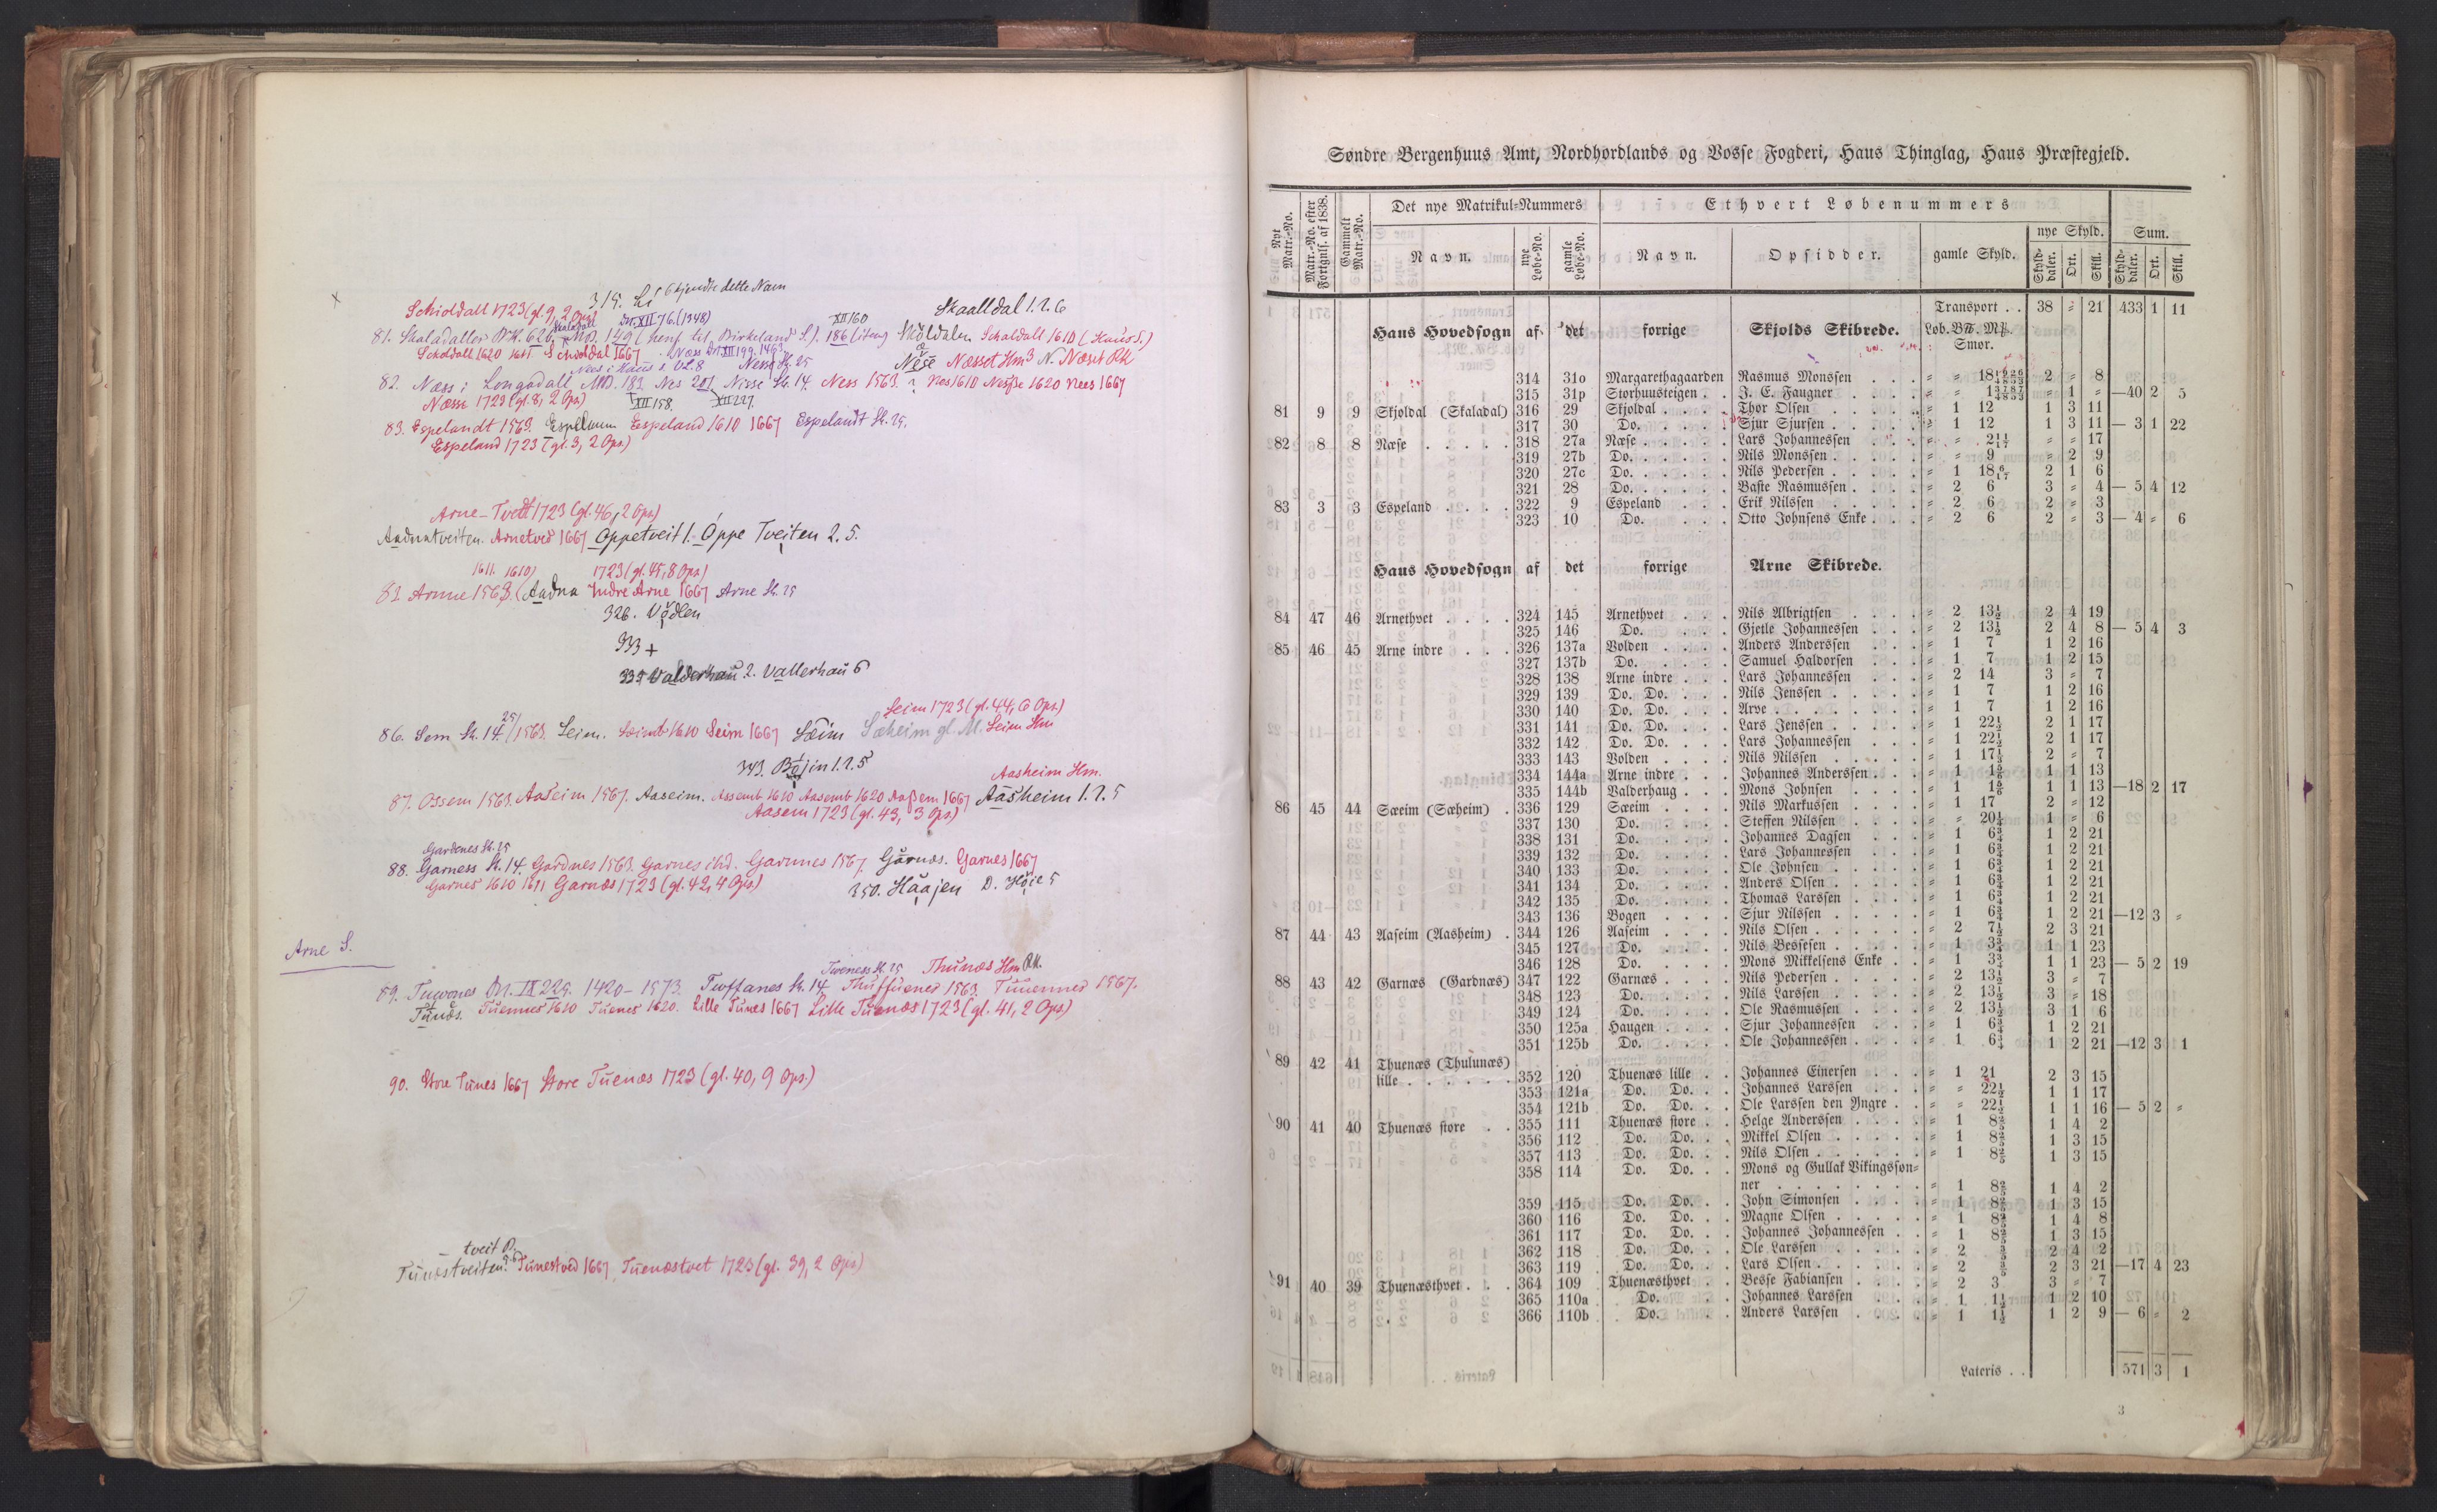 315. Li
kjendte dette Navn
Schioldall 1723 (gl. 9, 2 Ops)
Skaalldal 1.2.6
Skoldalen Schaldall 1610 (Haus S.)
Scholdall 1620 1661 Schioldal 1667
82. Næss i Longadall MB. 183. Nes 201. Nisse St. 14. Ness 1563. ? Nes 1610 Nesse 1620 Nees 1667
Næsse 1723 (gl. 8, 2 Ops) XII 158. XII 227.
83. Espelandt 1563. Espeland 1610 1667 Espelandt St. 25.
Espeland 1723 (gl. 3, 2 Ops.)
Arne-Tvett 1723 (gl. 46, 2 Ops)
Aadnatveiten. Arnetved 1667 Oppetveit 1. Oppe Tveiten 2. 5.
1611. 1610) 1723 (gl. 45, 8 Ops)
Arnne 1563. (Aadna Indre Arne 1667 Arne St. 25
326. Vødlen
333 +
335 Valderhau 2. Vallerhau 6
Seim 1723 (gl. 44, 6 Ops.)
86. Sem St. 14. 25/1563. Seim. Seimb 1610 Seim 1667 Sæim Sæheim gl. M. Seim Hm
343. Bøjin 1.2.5
Aasheim Hm.
87. Ossem 1563. Aaseim 1567. Aaseim. Assemb 1610 Aasemb 1620 Aaßem 1667 Aasheim 1.2.5
Aasem 1723 (gl. 43, 3 Ops.)
Gardenes St. 25
88. Garness St. 14. Gardnes 1563. Garnes ibd. Garnnes 1567 Garnæs. Garnes 1667
Garnes 1610 1611 Garnæs 1723 (gl. 42, 4 Ops.)
350. Haajen D. Høie 5
Arne S.
Tweness St. 25 Thunæs Hm RK.
89. Tuwones Dn. IX 225. 1420–1573. Tuffanes St. 14 Thuffuenes 1563. Tuuennes 1567.
Tunæs. Tuennes 1610 Tuenes 1620. Lille Tunes 1667 Lille Tuenæs 1723 (gl. 41, 2 Ops.)
90. Store Tunes 1667 Store Tuenæs 1723 (gl. 40, 9 Ops.)
tveit D.
Tunæstveiten. Tunestved 1667 Tuenæstvet 1723 (gl. 39, 2 Ops)
Søndre Bergenhuus Amt, Nordhordlands og Vosse Fogderi, Haus Thinglag, Haus Præstegjeld.
Nyt Matr.-No. Matr.-No. efter Fortgnelf. af 1838. Gammelt Matr.-No. Det nye Matrikul-Nummers Ethvert Løbenummers
Navn. nye Løbe-No. gamle Løbe-No. Navn. Opsidder. gamle Skyld. nye Skyld. Sum.
Skylddaler. Ort. Skill. Skylddaler. Ort. Skill.
Transport . . 38 = 21 433 1 11
Haus Hovedsogn af det forrige Skjolds Skibrede. Løb. B℔. M℔.
Smør.
314 31o Margarethagaarden Rasmus Monssen = = 2 = 8
315 31p Storhuusteigen J. E. Faugner = 1 = —40 2 5
81 9 9 Skjoldal (Skaladal) 316 29 Skjoldal Thor Olsen = 1 12 1 3 11
317 30 Do. Sjur Sjursen = 1 12 1 3 11 — 3 1 22
82 8 8 Næse 318 27a Næse Lars Johannessen = = 2 11/17 = = 17
319 27b Do. Nils Monssen = = 9 = 2 9
320 27c Do. Nils Pedersen = 1 18 6/17 2 1 6
321 28 Do. Baste Rasmussen = 2 6 3 = 4 — 5 4 12
83 3 3 Espeland 322 9 Espeland Erik Nilssen = 2 6 2 = 3
323 10 Do. Otto Johnsens Enke = 2 6 2 = 3 — 4 = 6
Haus Hovedsogn af det forrige Arne Skibrede.
84 47 46 Arnethvet 324 145 Arnethvet Nils Albrigtsen = 2 13½ 2 4 19
325 146 Do. Gjetle Johannessen = 2 13½ 2 4 8 — 5 4 3
85 46 45 Arne indre 326 137a Volden Anders Anderssen = 1 7 1 2 16
327 137b Do. Samuel Haldorsen = 1 7 1 2 15
328 138 Arne indre Lars Johannessen = 2 14 3 = 7
329 139 Do. Do. Nils Jenssen = 1 7 1 2 16
330 140 Do. Do. Arve = 1 7 1 2 16
331 141 Do. Do. Lars Jenssen = 1 22½ 2 1 17
332 142 Do. Do. Lars Johannessen = 1 22½ 2 1 17
333 143 Volden Nils Nilssen = 1 17⅓ 2 = 7
334 144a Arne indre Johannes Anderssen = 1 1⅚ 1 1 13
335 144b Valderhaug Mons Johnsen = 1 1⅚ 1 1 13 —18 2 17
86 45 44 Sæeim (Sæheim) 336 129 Sæeim Nils Markussen = 1 17 2 = 12
337 130 Do. Steffen Nilssen = = 20¼ 1 = 6
338 131 Do. Johannes Dagsen = 1 6¾ 1 2 21
339 132 Do. Lars Johannessen = 1 6¾ 1 2 21
340 133 Do. Ole Johnsen = 1 6¾ 1 2 21
341 134 Do. Anders Olsen = 1 6¾ 1 2 21
342 135 Do. Thomas Larssen = 1 6¾ 1 2 21
343 136 Bogen Sjur Nilssen = 1 6¾ 1 2 21 —12 3 =
87 44 43 Aaseim (Aasheim) 344 126 Aaseim Nils Olsen = 2 7½ 2 3 21
345 127 Do. Nils Bessesen = 1 3¾ 1 1 23
346 128 Do. Mons Mikkelsens Enke = 1 3¾ 1 1 23 — 5 2 19
88 43 42 Garnæs (Gardnæs) 347 122 Garnæs Nils Pedersen = 2 13½ 3 = 7
348 123 Do. Nils Larssen = 2 13½ 3 = 18
349 124 Do. Ole Rasmussen = 2 13½ 3 1 6
350 125a Haugen Sjur Johannessen = 1 6¾ 1 2 21
351 125b Do. Ole Johannessen = 1 6¾ 1 2 21 —12 3 1
89 42 41 Thuenæs (Thulunæs)
lille 352 120 Thuenæs lille Johannes Einersen = 1 21 2 3 15
353 121a Do. Do. Johannes Larssen = = 22½ 1 1 17
354 121b Do. Do. Ole Larssen den Yngre = = 22½ 1 1 16 — 5 2 =
90 41 40 Thuenæs store 355 111 Thuenæs store Helge Anderssen = 1 8⅖ 1 4 2
356 112 Do. Do. Mikkel Olsen = 1 8⅖ 1 3 15
357 113 Do. Do. Nils Olsen = 1 8⅖ 1 3 15
358 114 Do. Do. Mons og Gullak Vikingssøn-
ner = 1 8⅖ 1 4 2
359 115 Do. Do. John Simonsen = 1 8⅖ 1 3 15
360 116 Do. Do. Magne Olsen = 1 8⅖ 1 4 8
361 117 Do. Do. Johannes Johannessen = 1 8⅖ 1 3 15
362 118 Do. Do. Ole Larssen = 2 ⅗ 2 4 2
363 119 Do. Do. Lars Olsen = 2 ⅗ 2 3 21 —17 4 23
91 40 39 Thuenæsthvet 364 109 Thuenæsthvet Besse Fabiansen = 2 3 3 = 7
365 110a Do. Johannes Larssen = 1 1½ 1 2 10
366 110b Do. Anders Larssen = 1 1½ 1 2 9 — 6 = 2
Lateris . . 571 3 1
3